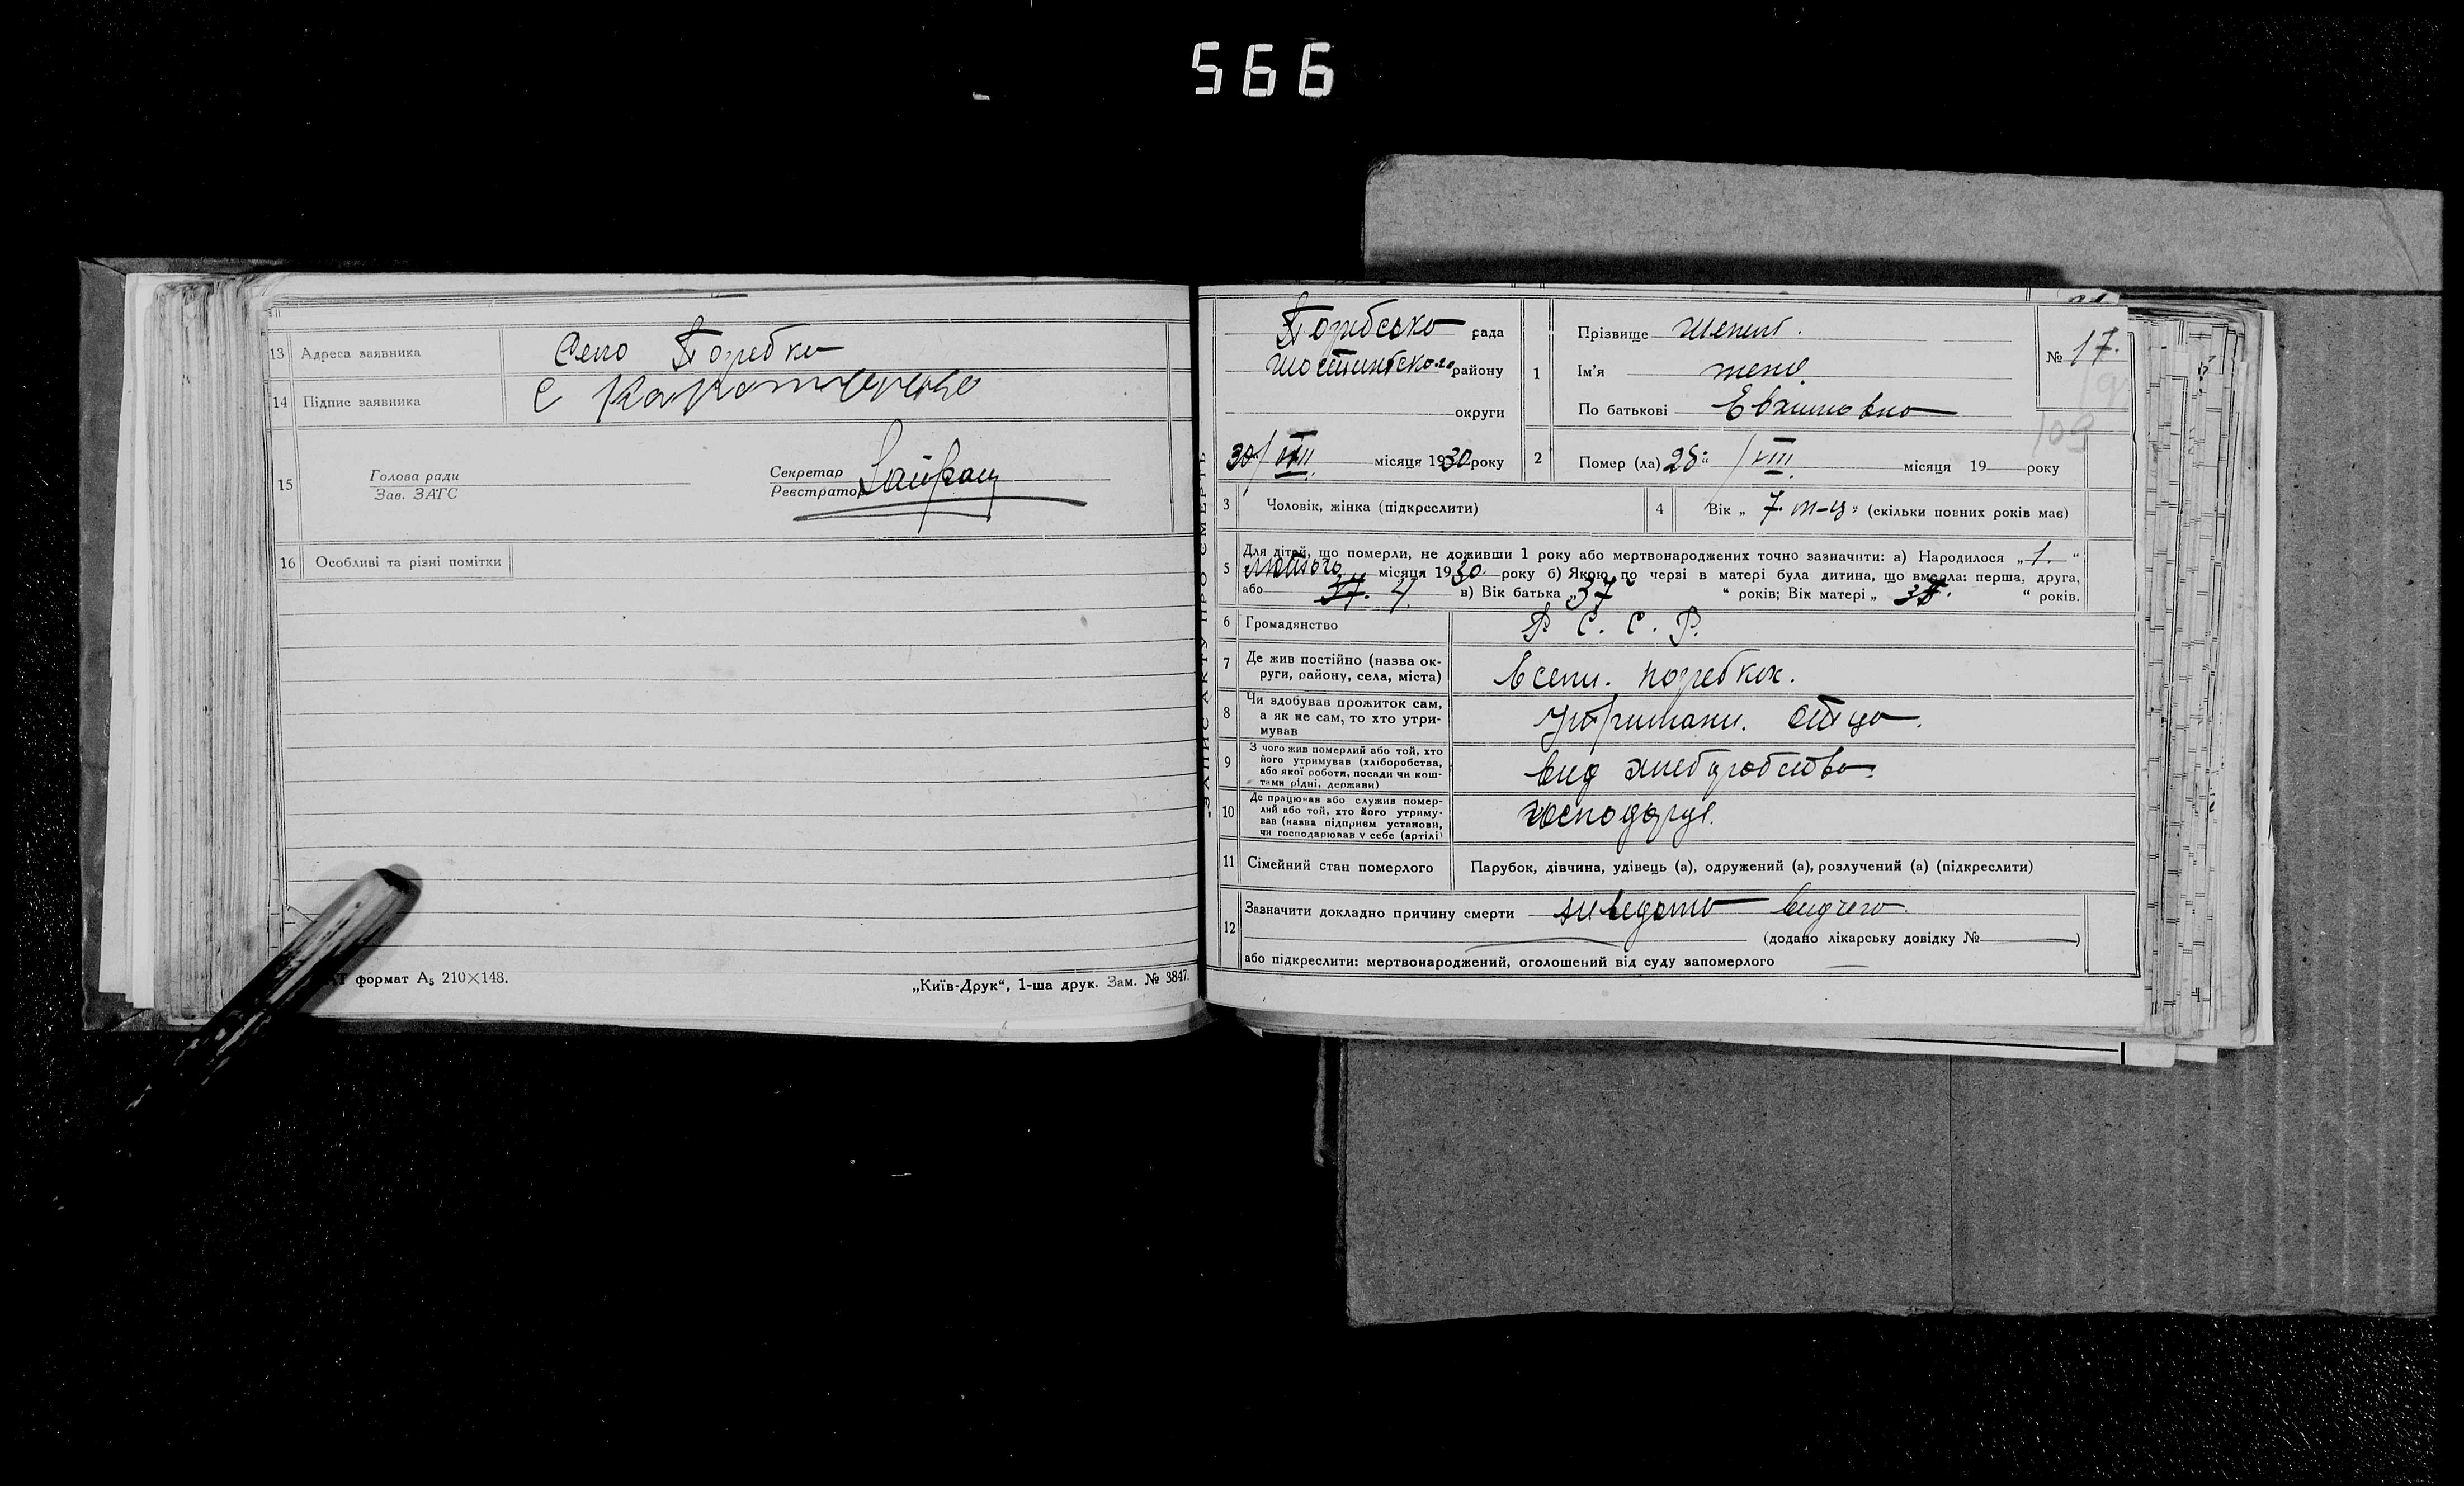 566
13 Адреса заявника Село Погребки
14 Підпис заявника Є
15 Голова ради
Зав. ЗАГС
Секретар
Реєстратор
16 Особливі та різні помітки
формат А5 210×148.
„Київ-Друк“, 1-ша друк. Зам. № 3847.
ЗАПИС АКТУ ПРО СМЕРТЬ
рада
Шостинського району
округи
30/VIII місяця 1930 року
1 Прізвище
Ім'я
По батькові
№ 17.
109
2 Помер (ла) 28 „ /VIII місяця 19 року
3 Чоловік, жінка (підкреслити)
4 Вік „ 7 м-ц “ (скільки повних років має)
5 Для дітей, що померли, не доживши 1 року або мертвонароджених точно зазначити: а) Народилося „ 1. “
лютого місяця 1930 року б) Якою по черзі в матері була дитина, що вмерла: перша, друга,
або 4. в) Вік батька „ 37 “ років; Вік матері „ “ років.
6 Громадянство Р. С. С. Р.
7 Де жив постійно (назва ок-
руги, району, села, міста) в сели. погребках.
8 Чи здобував прожиток сам,
а як не сам, то хто утри-
мував утримани. отця.
9 З чого жив померлий або той, хто
його утримував (хліборобства,
або якої роботи, посади чи кош-
тами рідні, держави) вид хлеборобства.
10 Де працював або служив помер-
лий або той, хто його утриму-
вав (назва підприєм установи,
чи господарював у себе (артілі)
11 Сімейний стан померлого Парубок, дівчина, удівець (а), одружений (а), розлучений (а) (підкреслити)
12 Зазначити докладно причину смерти видчего.
(додано лікарську довідку № )
або підкреслити: мертвонароджений, оголошений від суду запомерлого